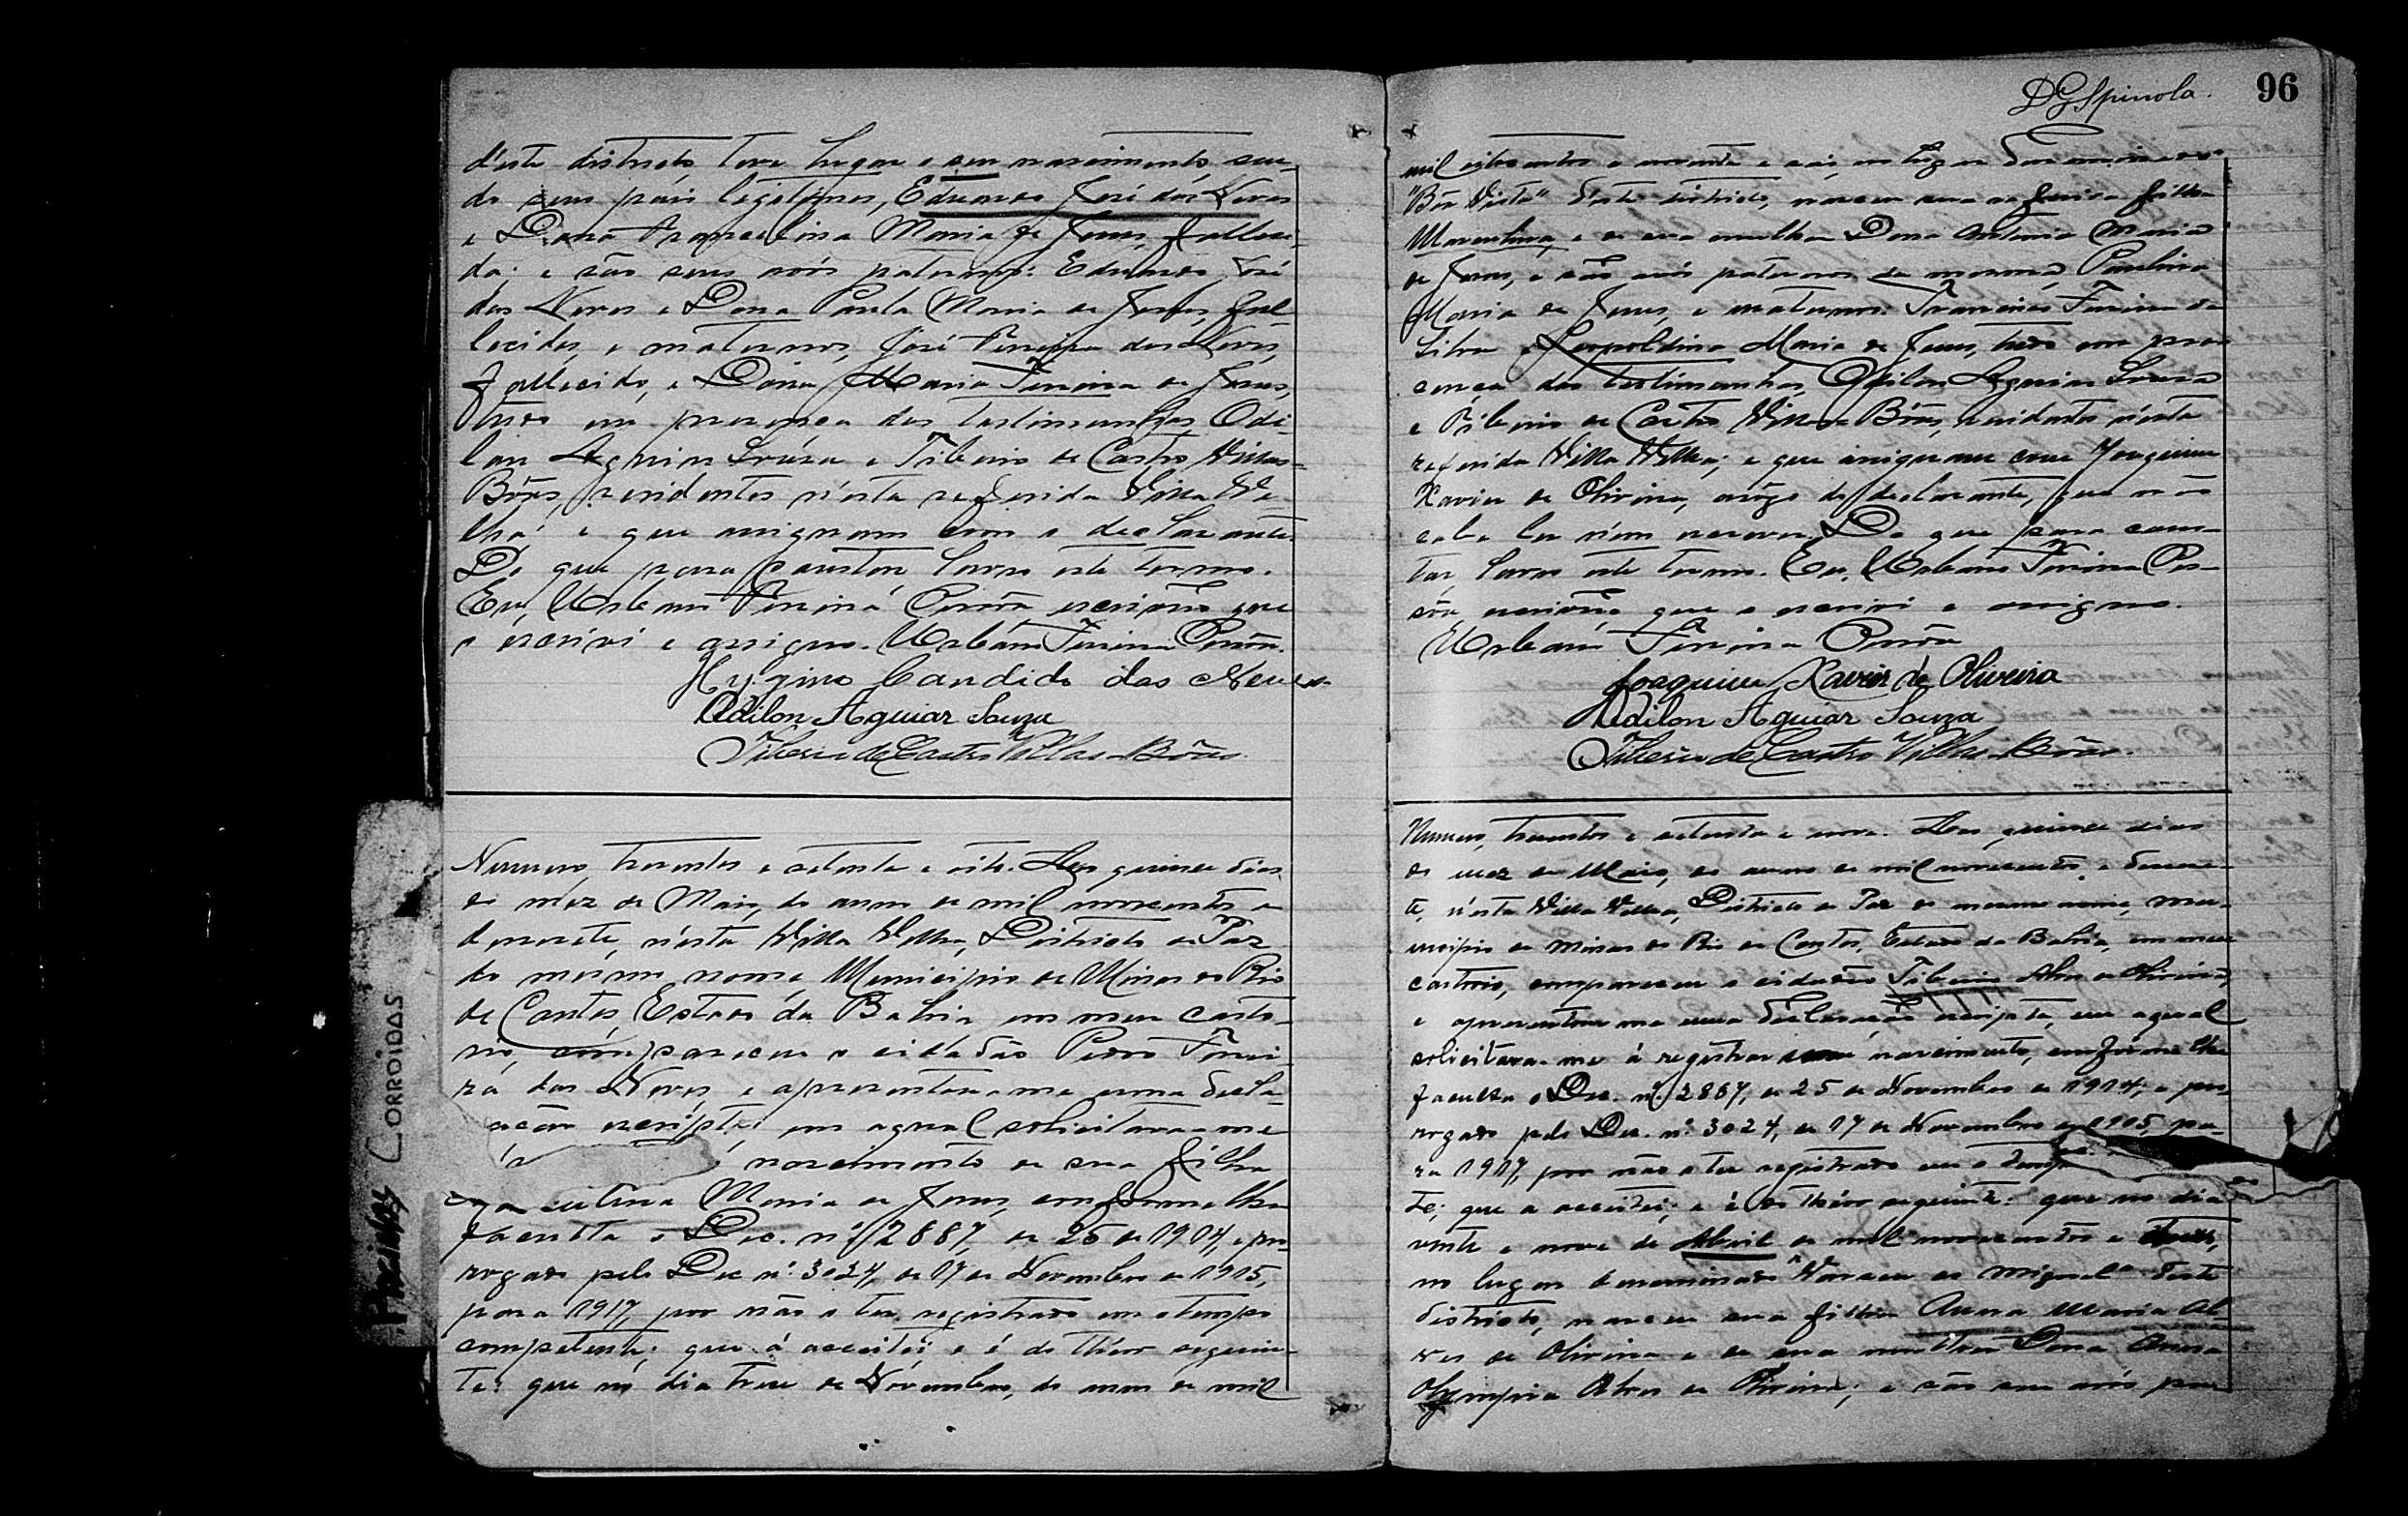 d'este districto, teve lugar o seu nascimento, sen-
do seus pais legitimos, Eduardo José das Neves
e Dona Maria de Jesus, falleci-
da; e são seus avós paternos: Eduardo José
das Neves e Dona Paula Maria de Jesus, fal-
lecidos, e maternos, José Pereira das Neves,
fallecido, e Dona Maria Ferreira de Jesus,
tudo em presença das testimunhas Odi-
lon Aguiar Souza e Tiberio de Castro Villas-
Bôas, residentes n'esta referida Villa Ve-
lha e que assignam com o declarante.
Do que para constar lavro este termo.
Eu, Urbano Ferreira Pessôa escrivão que
o escrivi e assigno. Urbano Ferreira Pessôa.
Hygino Candido das Neves
Odilon Aguiar Souza
Tiberio de Castro Villas-Bôas.
Numero, trezentos e setenta e oito. Aos quinze dias
do mez de Maio, do anno de mil novecentos e
dezesete, n'esta Villa Velha, Districto de Paz
do mesmo nome, Municipio de Minas do Rio
de Contas, Estado da Bahia em meu carto-
rio, compareceu o cidadão Pedro Ferrei-
ra das Neves, e apresentou-me uma decla-
ração escripta, em a qual solicitava-me
nascimento de sua filha
Maria de Jesus, conforme lhe
faculta o Dec. nº 2887, de 25 de 1914, e pro-
rogado pelo Dec nº 3024, de 17 de Novembro de 1915,
para 1917, por não o ter registrado em o tempo
competente; que á acceitei; e é do thêor seguin-
te: que no dia treze de Novembro, do anno de mil
DGSpinola. 96
mil oitocentos e noventa e seis, no lugar denominado
"Bôa Vista" d'este districto, nasceu sua referida filha
e de sua mulher Dona Antonia Maria
de Jesus, e são avós paternos da mesma, Paulina
Maria de Jesus, e maternos: Francisco Ferreira da
Silva e Leopoldina Maria de Jesus, tudo em pre-
sença das testimunhas, Odilon Aguiar Souza
e Tiberio de Castro Villas-Bôas, residentes n'esta
referida Villa Velha; e que assignam com Joaquim
Xavier de Oliveira, arôgo do declarante, que não
sabe ler n'em escrever. Do que para cons-
tar, lavro este termo. Eu, Urbano Ferreira Pes-
sôa escrivão, que o escrivi e assigno.
Urbano Ferreira Pessôa
Joaquim Xavier de Oliveira
Odilon Aguiar Souza
Tiberio de Castro Villas-Bôas.
Numero, trezentos e setenta e nove. Aos, quinze dias
do mez de Maio, do anno de mil novecentos, e dezese-
te, n'esta Villa Velha, Districto de Paz do mesmo nome, mu-
nicipio de Minas do Rio de Contas, Estado da Bahia, em meu
cartorio, compareceu o cidadão Tiberio Alves de Oliveira,
e apresentou-me uma declaração escripta, em a qual
solicitava-me á registrar nascimento, conforme lhe
faculta o Dec. nº 2887, de 25 de Novembro de 1914; e pro-
rogado pelo Dec. nº 3024, de 17 de Novembro de 1915, pa-
ra 1917, por não o ter registrado em o tempo
te; que a acceitei; e é do thêor seguinte: que no dia
vinte e nove de Abril de mil novecentos e
no lugar denominado "Varzea do Miguel" deste
districto, nasceu sua filha Anna Maria Al-
ves de Oliveira e de sua mulher Dona Anna
Olympia Alves de Oliveira; e são seus avós pa-
Paginas Corroidas